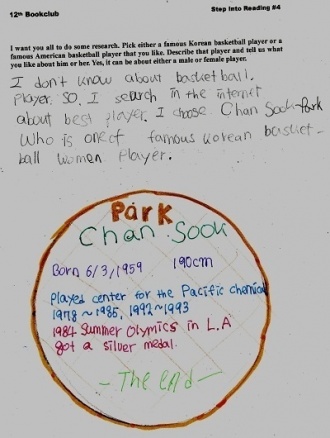 12th Bookclub
Step Into Reading #4
I want you all to do some research. Pick either a famous Korean basketball player or a
famous American basketball player that you like. Describe that player and tell us what
you like about him or her. Yes, it can be about either a male or female player.
I don't know about basketball.
Player. So, I search in the internet
about best player. I choose Chan Sook-Park
Who is one of famous Korean basket-
ball women Player.
Park
Chan Sook
Born 6/3/1959 190cm
Played center for the Pacific chemical
1978~1985, 1992~1993
1984 Summer Olymics in L.A
got a silver medal.
-The end-